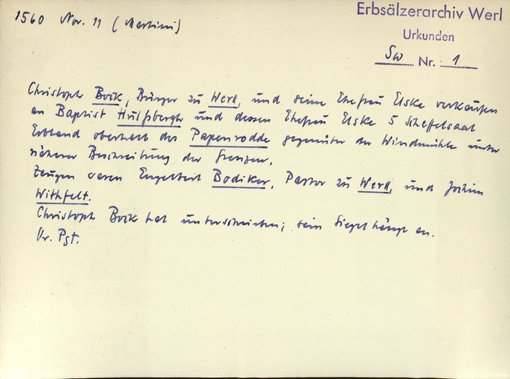 1560 Nov. 11 (Martini)
Erbsälzerarchiv Werl
Urkunden
Sw Nr. 1
Christoph Brik, Bürger zu Werl, und seine Ehefrau Elske verkaufen
an Baptist Hülsbergh und dessen Ehefrau Elske 5 Scheffelsaat
Erbland oberhalb des Papenrodde gegenüber der Windmühle unter
näherer Beschreibung der Grenzen.
Zeugen waren Engelbert Bodiker, Pastor zu Werl, und Jochim
Withfelt.
Christoph Brik hat unterschrieben; sein Siegel hängt an.
Or. Pgt.